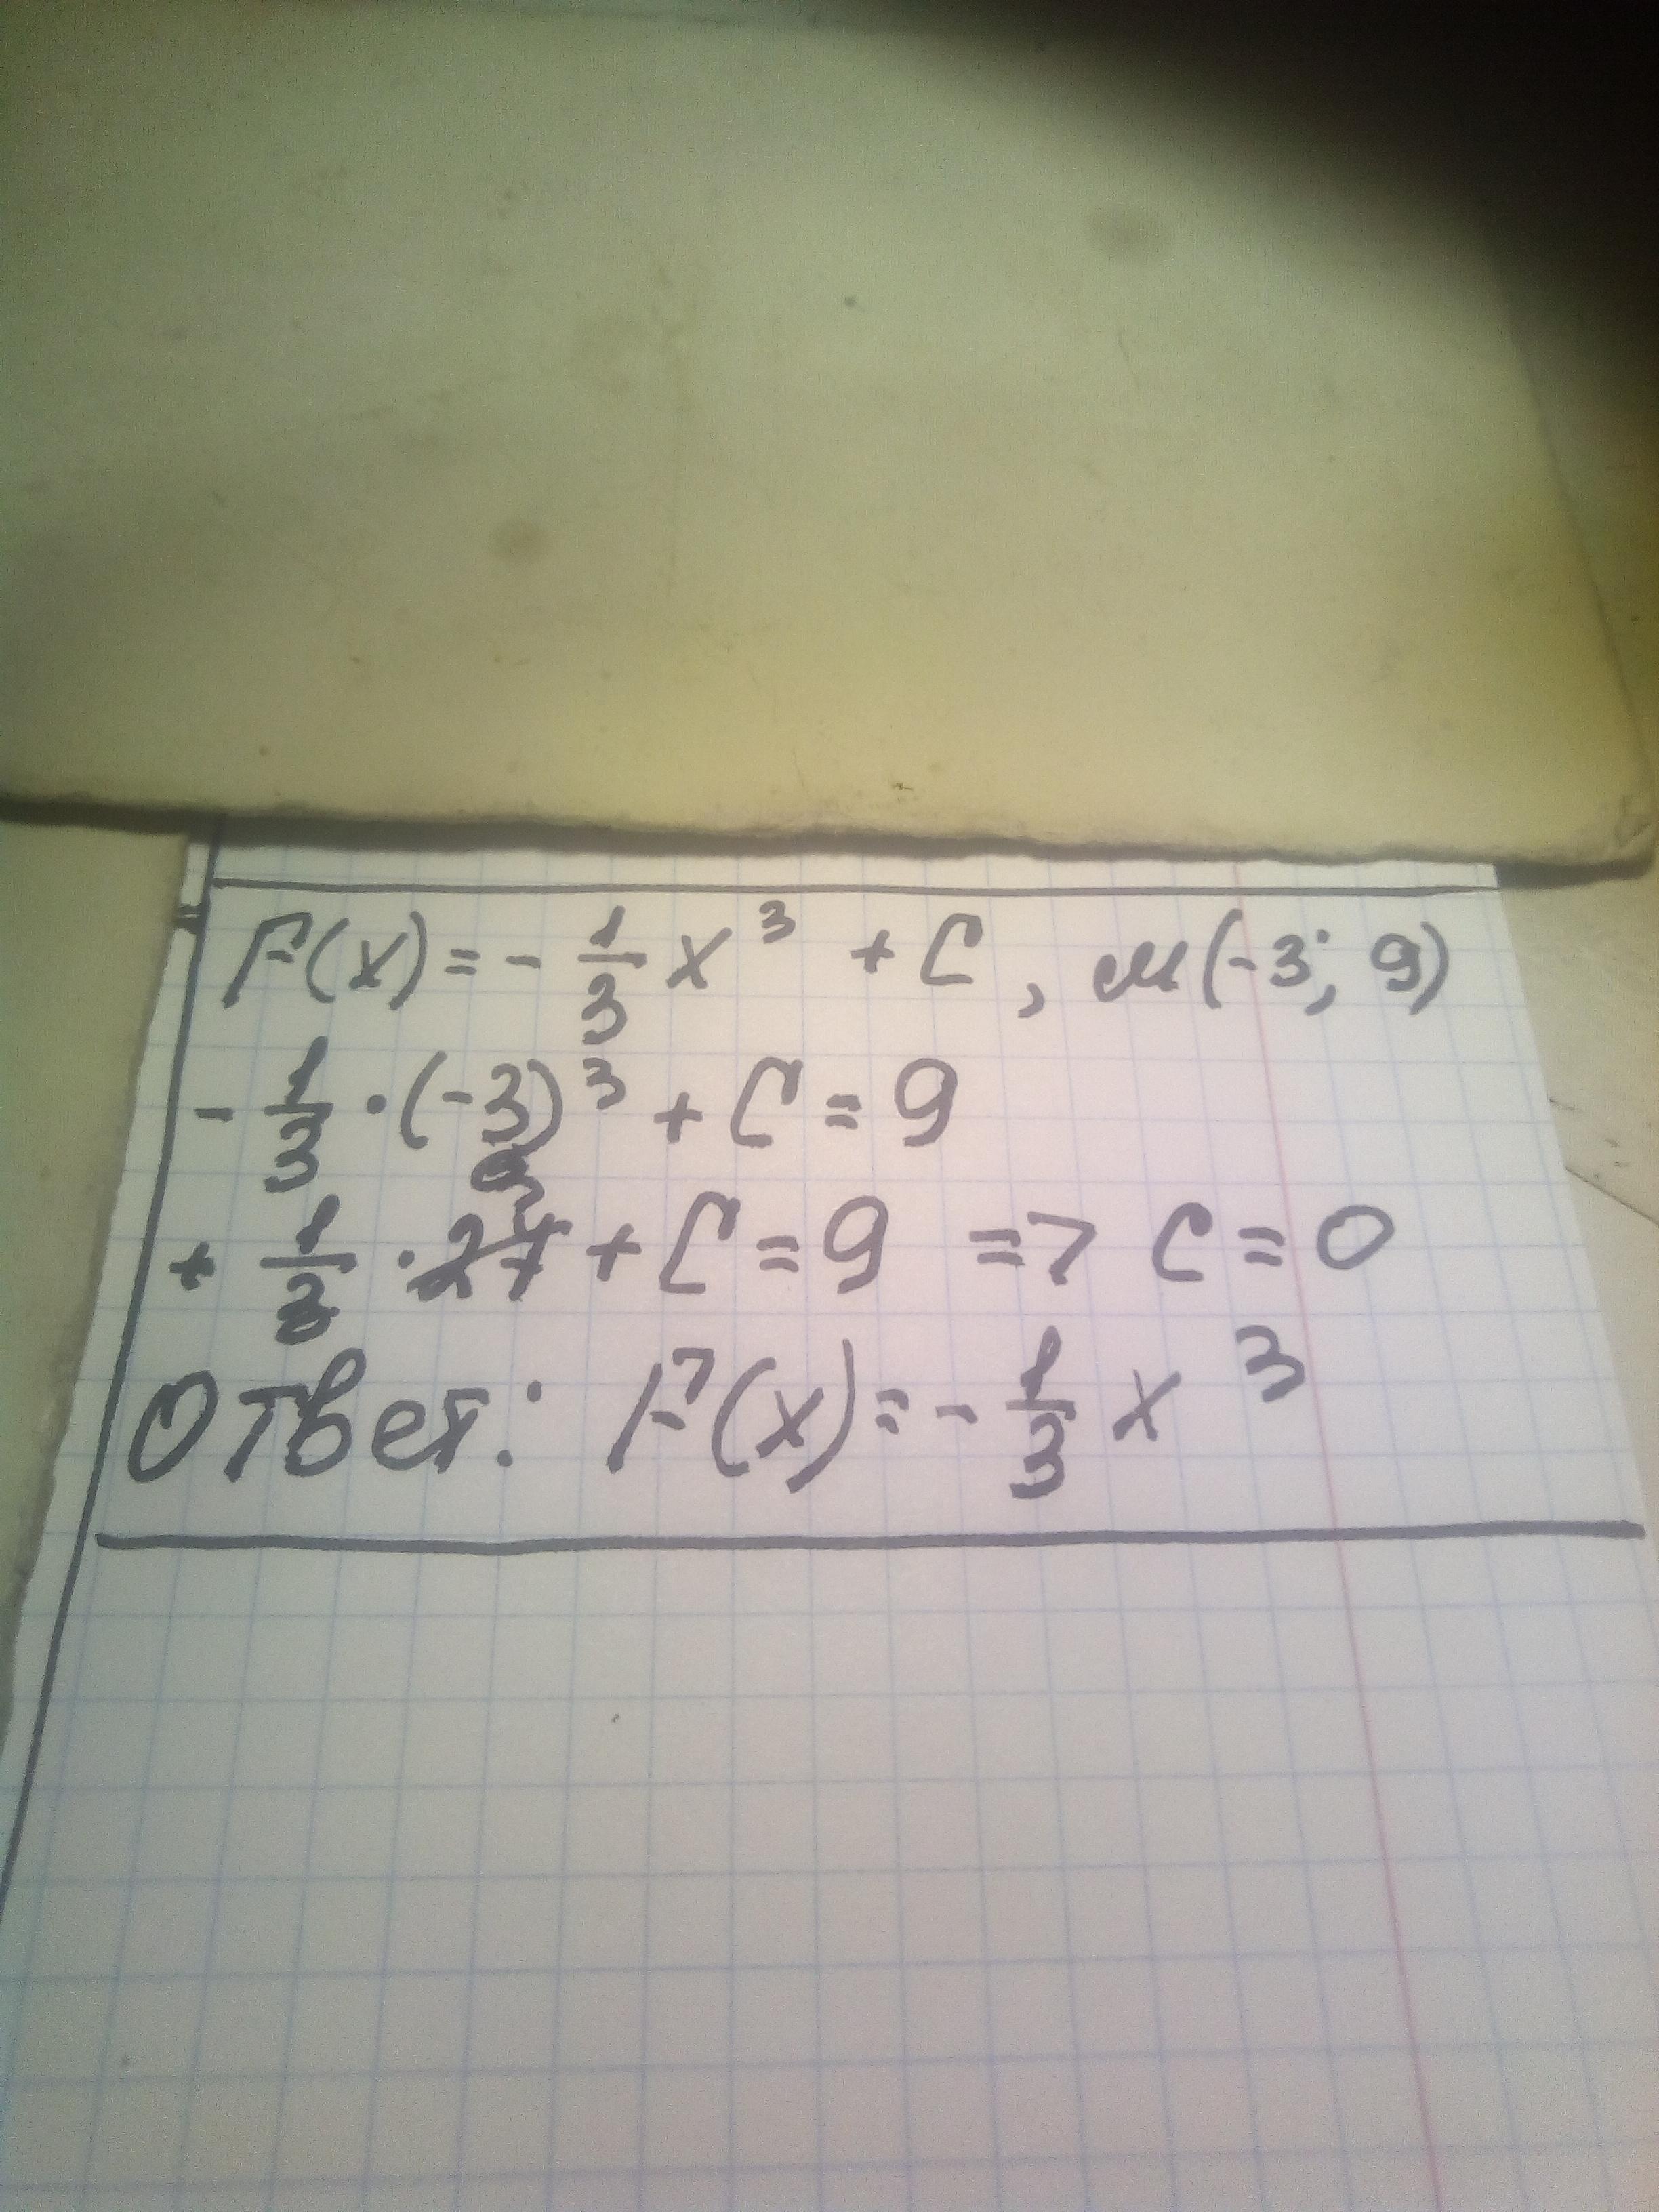 F(x) = - 1/3 x³ + C, M(-3; 9)
- 1/3 · (-3)³ + C = 9
+ 1/3 · 27 + C = 9 => C = 0
Ответ: F(x) = - 1/3 x³